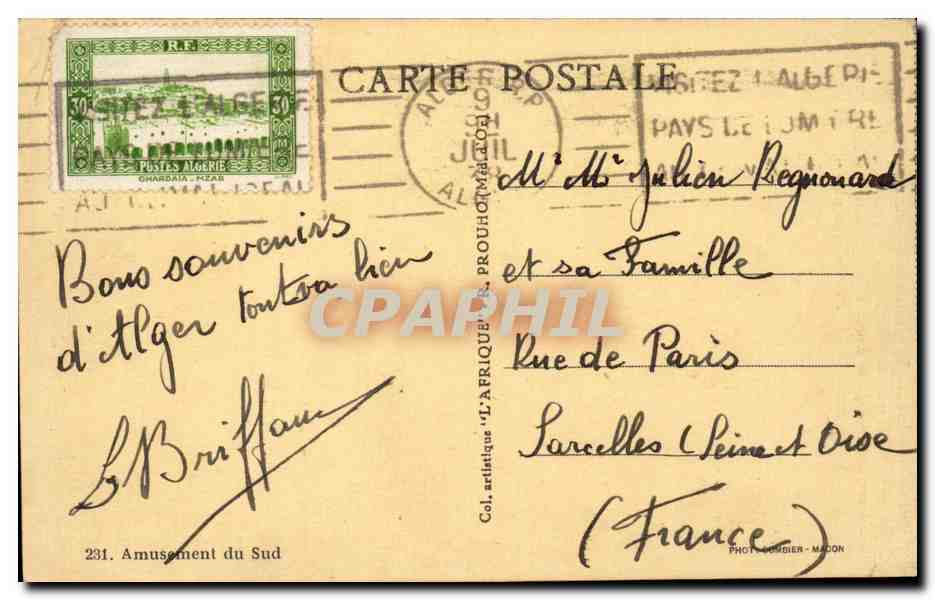 R.F.
30c 30c
POSTES ALGERIE
GHARDAIA - MZAB
CARTE POSTALE
ALGER R.P
9
JUIL
VISITEZ L'ALGERIE
PAYS DE LUMIERE
Bons souvenirs
d'Alger tout va bien
231. Amusement du Sud
Col. artistique "L'AFRIQUE" - R. PROUHO (Méd. d'Or)
Mr Me Julien Regnouard
et sa Famille
Rue de Paris
Sarcelles (Seine et Oise
(France)
PHOT. COMBIER - MACON
CPAPHIL